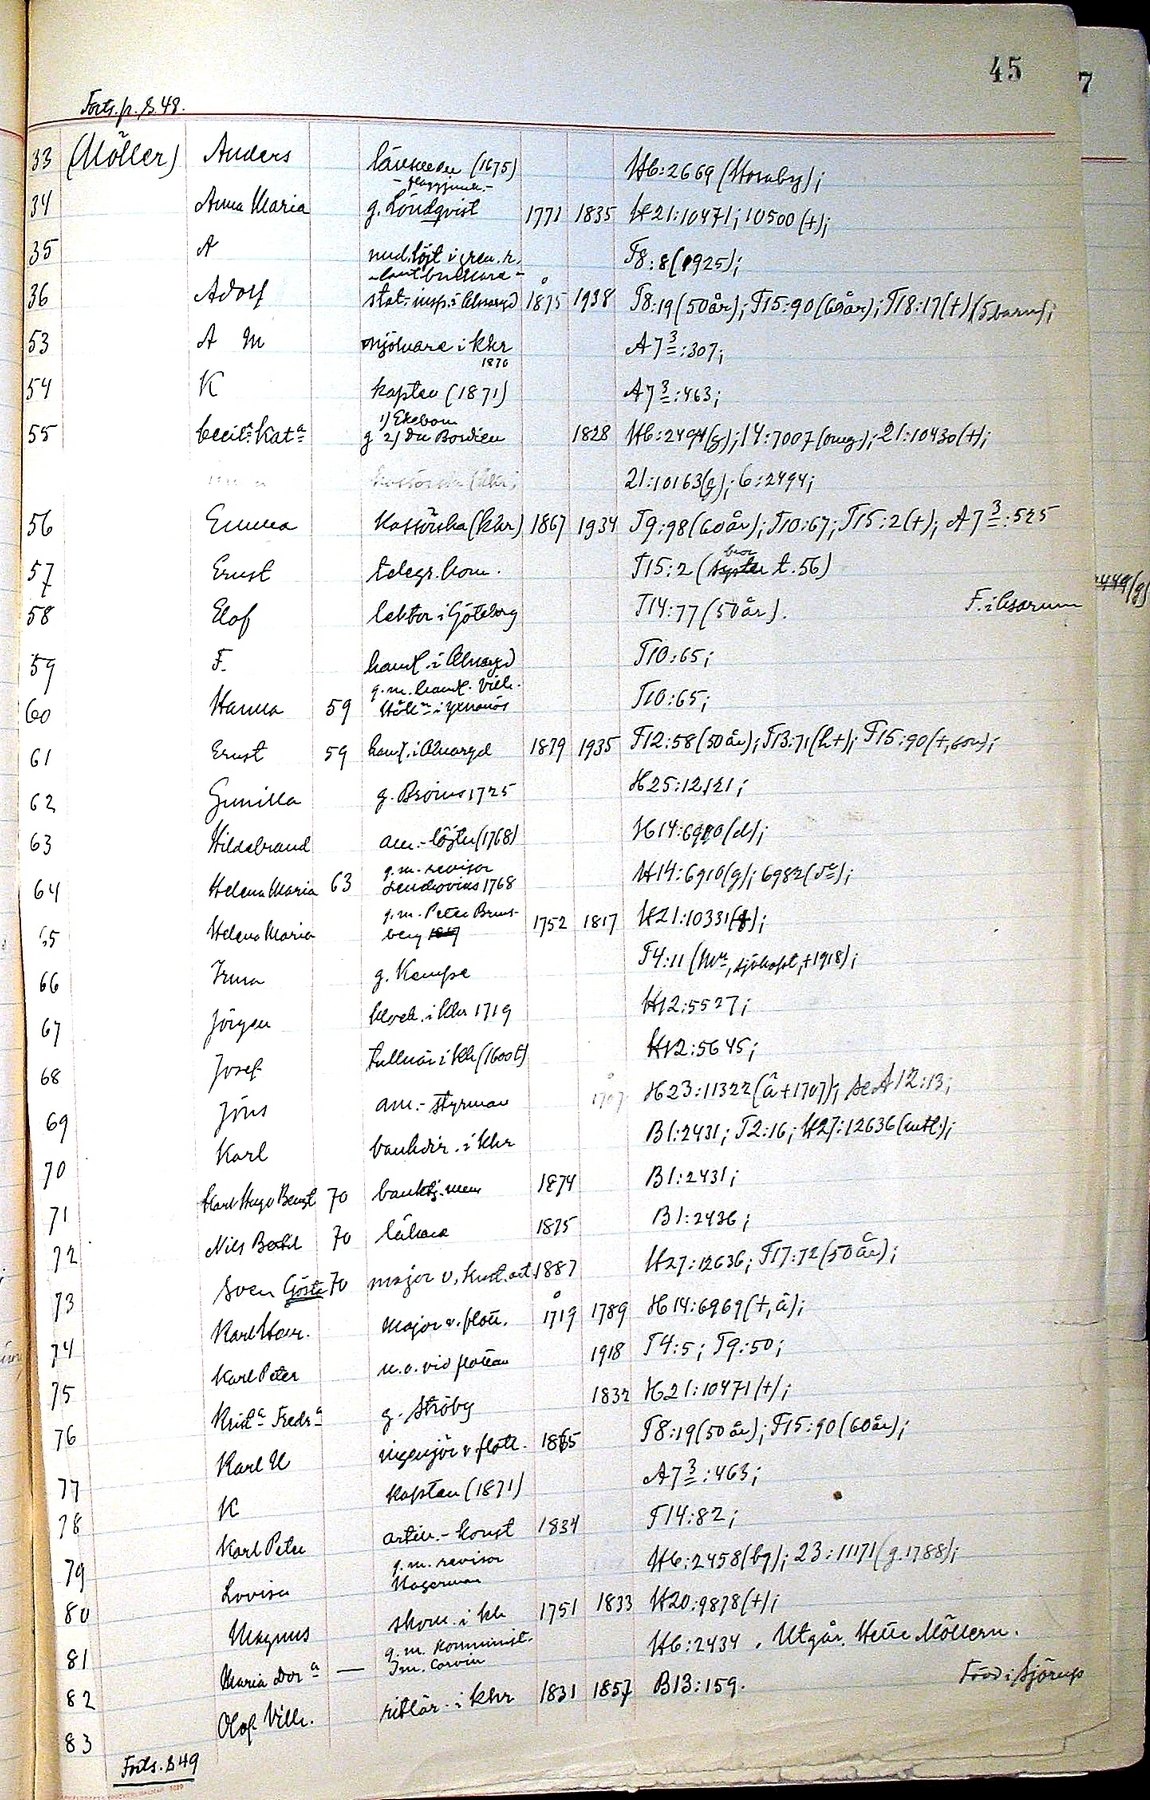 45
7
Forts. fr. S. 48.
33 (Möller) Anders (1675) H6:2669 (Hornaby);
34 Anna Maria g. Löndqvist 1771 1835 H21:10471; 10500 (+);
35 A und.löjt i T8:8 (1925);
36 Adolf stat.-insp. i Alnaryd 1875 1938 T8:19 (50 år); T15:90 (60 år); T18:17 (+) (5 barn);
53 A M mjölnare i khr 1870 A7 3:307;
54 K kapten (1871) A7 3:463;
55 Cecil a Kat a g 1) Ekebom 2) du Bordieu 1828 H6:2494 (g); 14:7007 (omg); 21:10430 (+);
21:10163 (g); 6:2494;
56 Emma kassörska (khr) 1867 1934 T9:98 (60 år); T10:67; T15:2 (+); A7 3:525
57 Ernst telegr.kom. T15:2 (bror t. 56)
58 Elof lektor i Göteborg T14:77 (50 år). F. i Asarum
59 F. handl. i Alnaryd T10:65;
60 Hanna 59 g. m. handl. Vilh. T10:65;
61 Ernst 59 handl. i Alnaryd 1879 1935 T12:58 (50 år); T13:71 (h+); T15:90 (+, son);
62 Gunilla g. Brorius 1725 H25:12121;
63 Hildebrand am.-löjtn (1768) H14:6910 (d);
64 Helena Maria 63 g. m. revisor 1768 H14:6910 (g); 6982
65 Helena Maria g. m. Peter Bruusberg 1752 1817 H21:10331 (g);
66 Irma g. Kempe T4:11 (Mor, sjökapt, +1918);
67 Jörgen klock. i khr 1719 H12:5527;
68 Josef tullnär i kh (1600t) H12:5645;
69 Jöns am.-styrman 1707 H23:11322 (å +1707); se A12:13;
70 Karl bankdir. i khr B1:2431; T2:16; H27:12636 (entl.);
71 Karl Hugo Bengt 70 banktj.man 1874 B1:2431;
72 Nils Bertil 70 läkare 1875 B1:2436;
73 Sven Gösta 70 major v. kust.art 1887 H27:12636; T17:72 (50 år);
74 Karl Henr. major v. flott. 1719 1789 H14:6969 (+, å);
75 Karl Peter u.o. vid flottan 1918 T4:5; T9:50;
76 Krist a Fredr a g. Ströby 1832 H21:10471 (+);
77 Karl U ingenjör v flott. 1865 T8:19 (50 år); T15:90 (60 år);
78 K kapten (1871) A7 3:463;
79 Karl Peter artill.-konst 1834 T14:82;
80 Lovisa g. m. revisor Hagerman H6:2458 (bg); 23:11171 (g. 1788);
81 Magnus skom. i kh 1751 1833 H20:9878 (+);
82 Maria Dor a — g. m. komminist. Im. Corvin H6:2434. Utgår. Hette Möllern.
83 Olof Vilh. ritlär. i khr 1831 1857 B13:159. Född i Sjörup
Forts. S 49